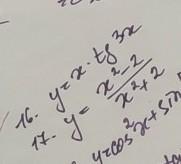 16. y = x · tg 3x
17. y = (x² - 2)/(x² + 2)
y = cos² x + sin